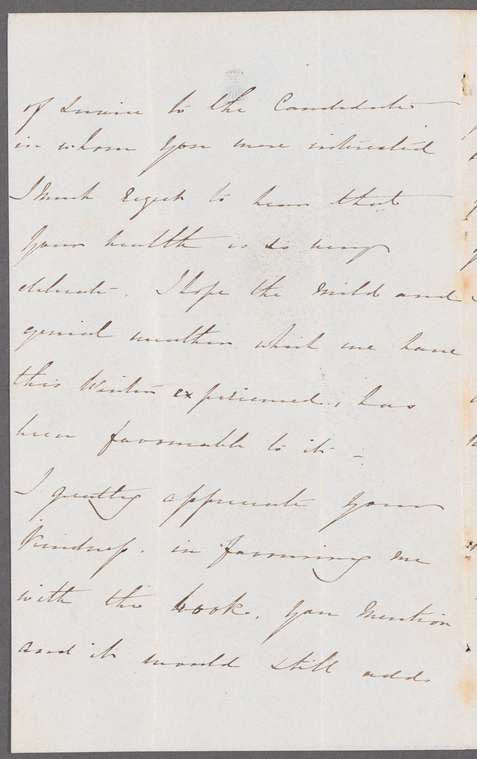 of service to the Candidate
in whom you were interested
I much regret to hear that
your health is so very
delicate. I hope the mild and
genial weather which we have
this Winter experienced, has
been favourable to it -
I greatly appreciate your
Kindness. in favouring me
with the book. you mention
and it would still add